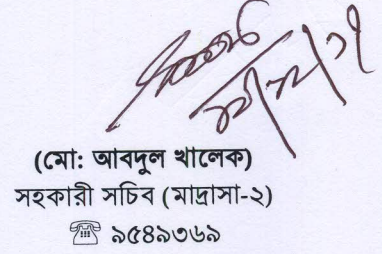 (মো: আবদুল খালেক)
সহকারী সচিব (মাদ্রাসা-২)
☏ ৯৫৪৯৩৬৯